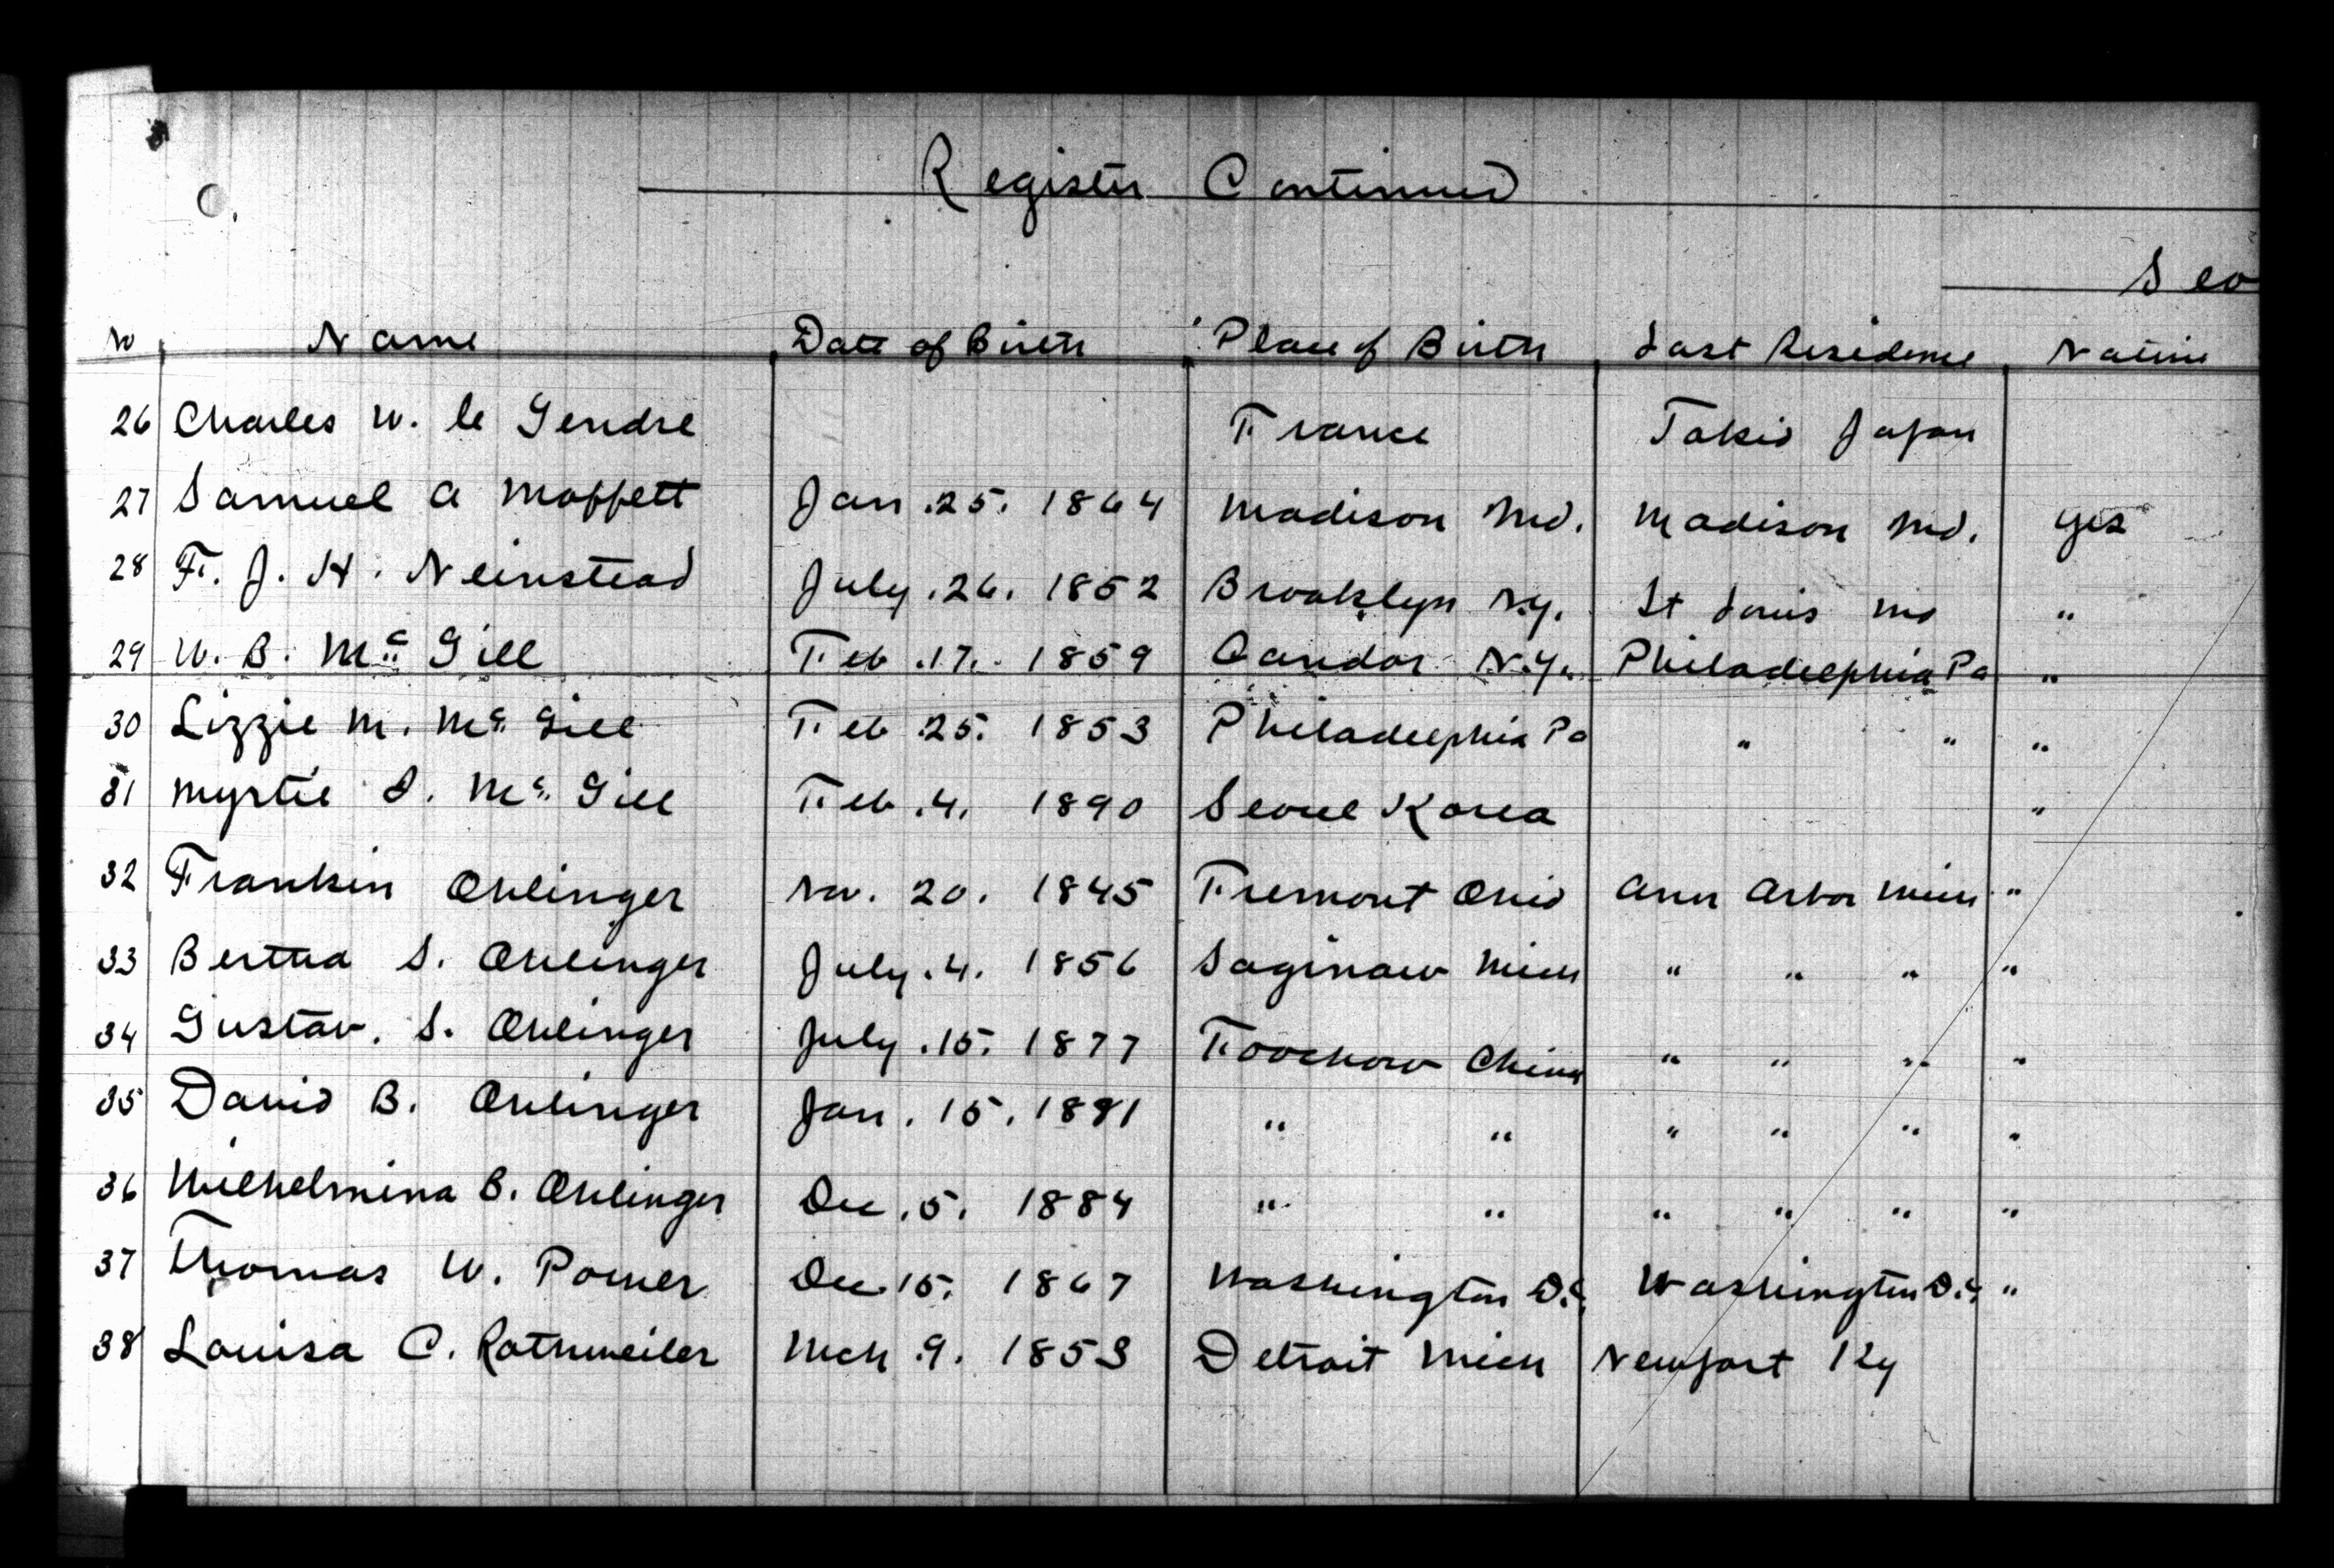 Register Continued
Seo
No Name Date of Birth Place of Birth Last Residence Native
26 Charles W. le Gendre France Tokio Japan
27 Samuel A Moffett Jan. 25. 1864 Madison Ind. Madison Ind. yes
28 F. J. H. Neinstead July. 26. 1852 Brooklyn N.Y. St Louis Mo "
29 W. B. Mc Gill Feb. 17. 1859 Candor N.Y. Philadelphia Pa "
30 Lizzie M. Mc Gill Feb 25. 1853 Philadelphia Pa " " "
31 Myrtle Mc Gill Feb. 4. 1890 Seoul Korea "
32 Frankin Ohlinger Nov. 20. 1845 Fremont Ohio Ann Arbor Mich "
33 Bertha S. Ohlinger July. 4. 1856 Saginaw Mich " " " "
34 Gustav. S. Ohlinger July. 15. 1877 Foochow China " " " "
35 David B. Ohlinger Jan. 15. " " " " " "
36 Wilhelmina B. Ohlinger Dec. 5. 1884 " " " " " "
37 Thomas W. Power Dec 15. 1867 Washington D.C. Washington D.C. "
38 Louisa C. Rothweiler Mch. 9. 1853 Detroit Mich Newport Ky